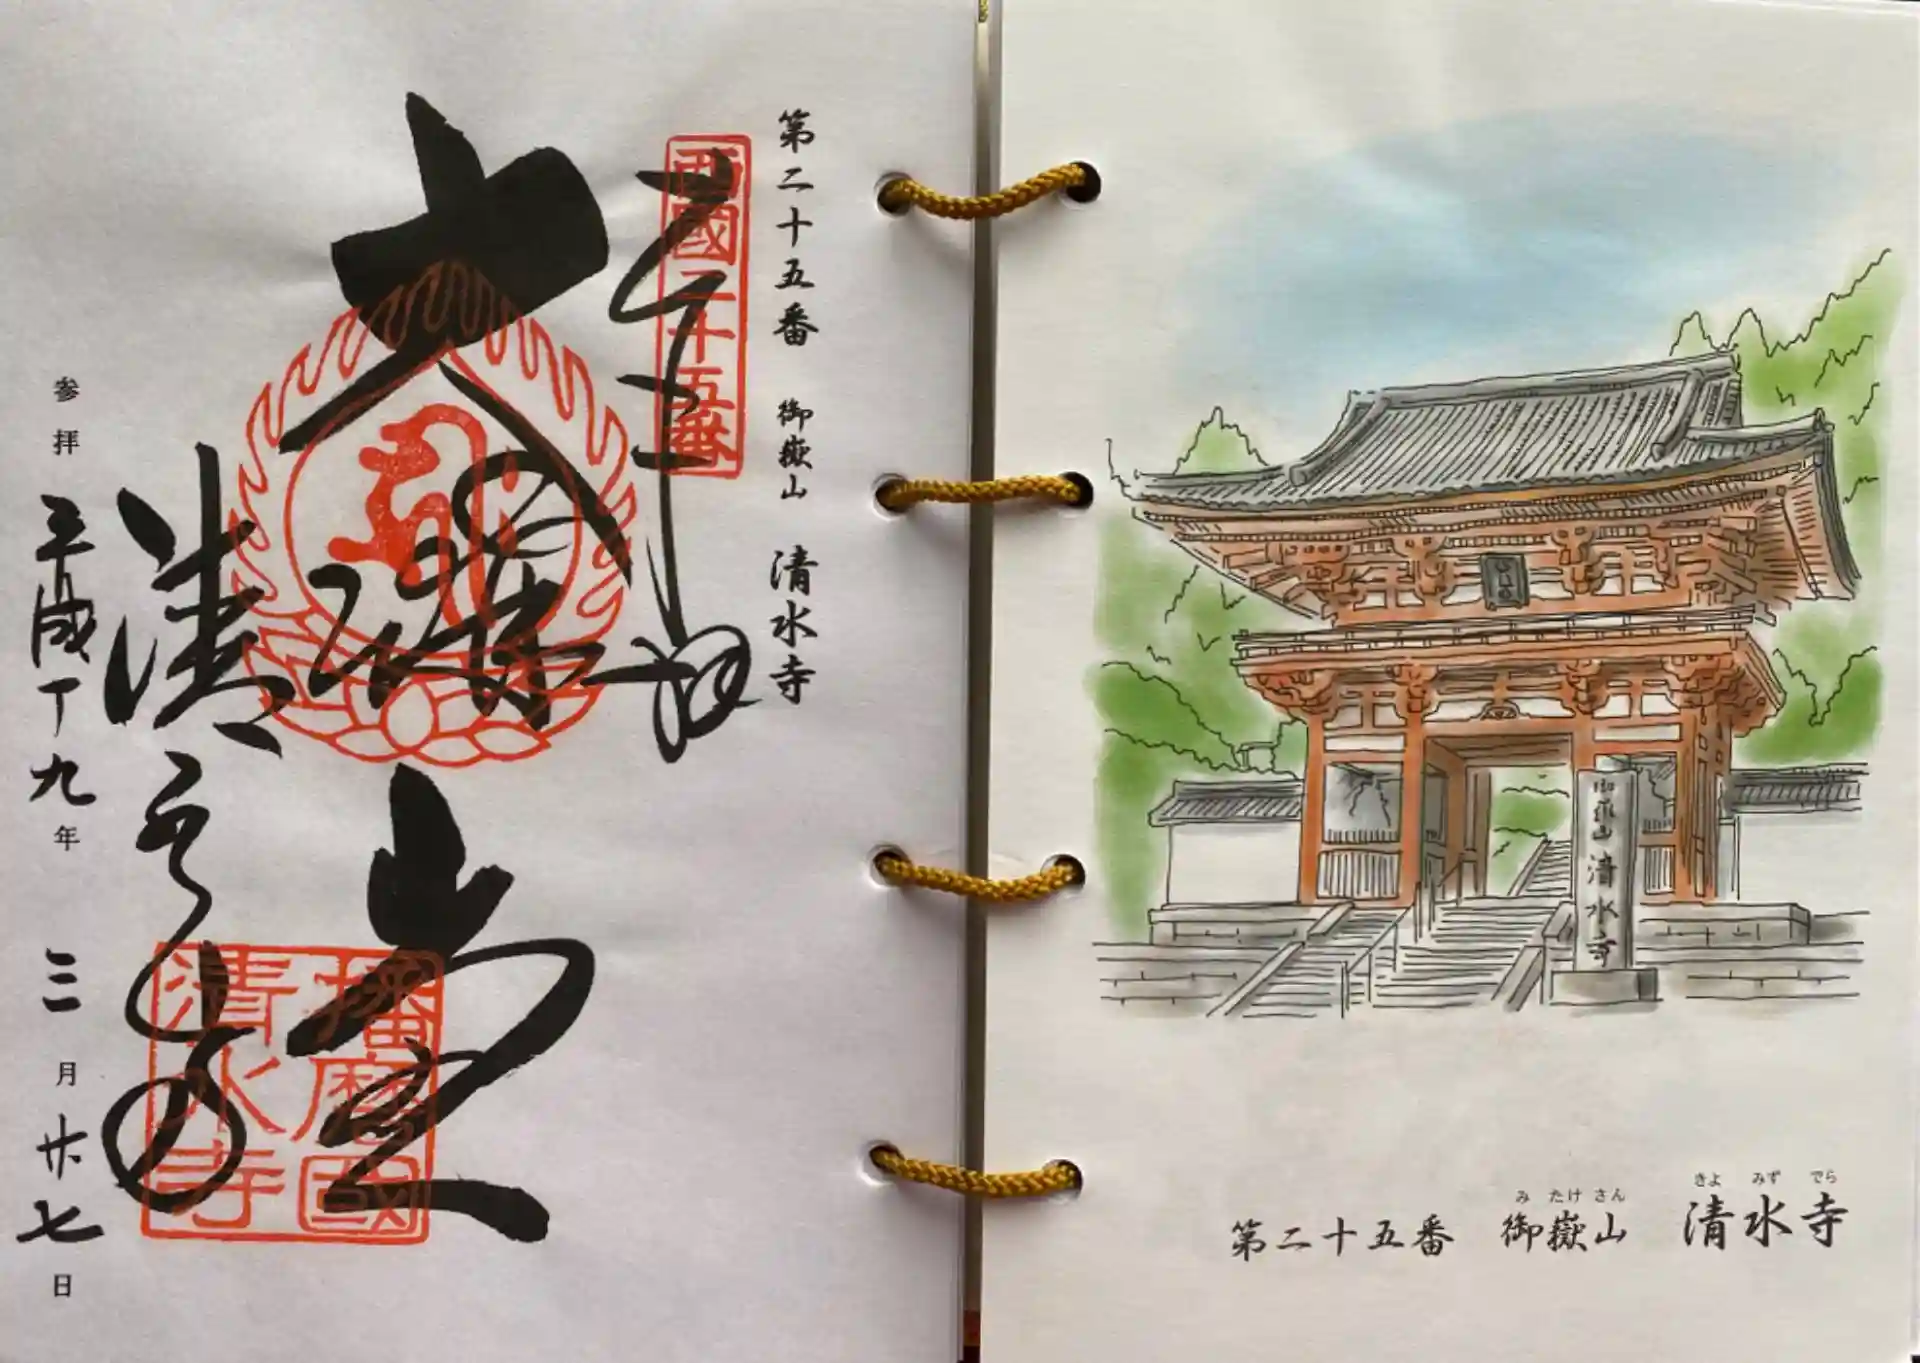 第二十五番 御嶽山 清水寺
西國二十五番
奉拝
大悲殿
清水寺
播磨國
清水寺
参拝 平成十九年 三月廿七日
御嶽山 清水寺
み たけ さん
きよ みず でら
第二十五番 御嶽山 清水寺